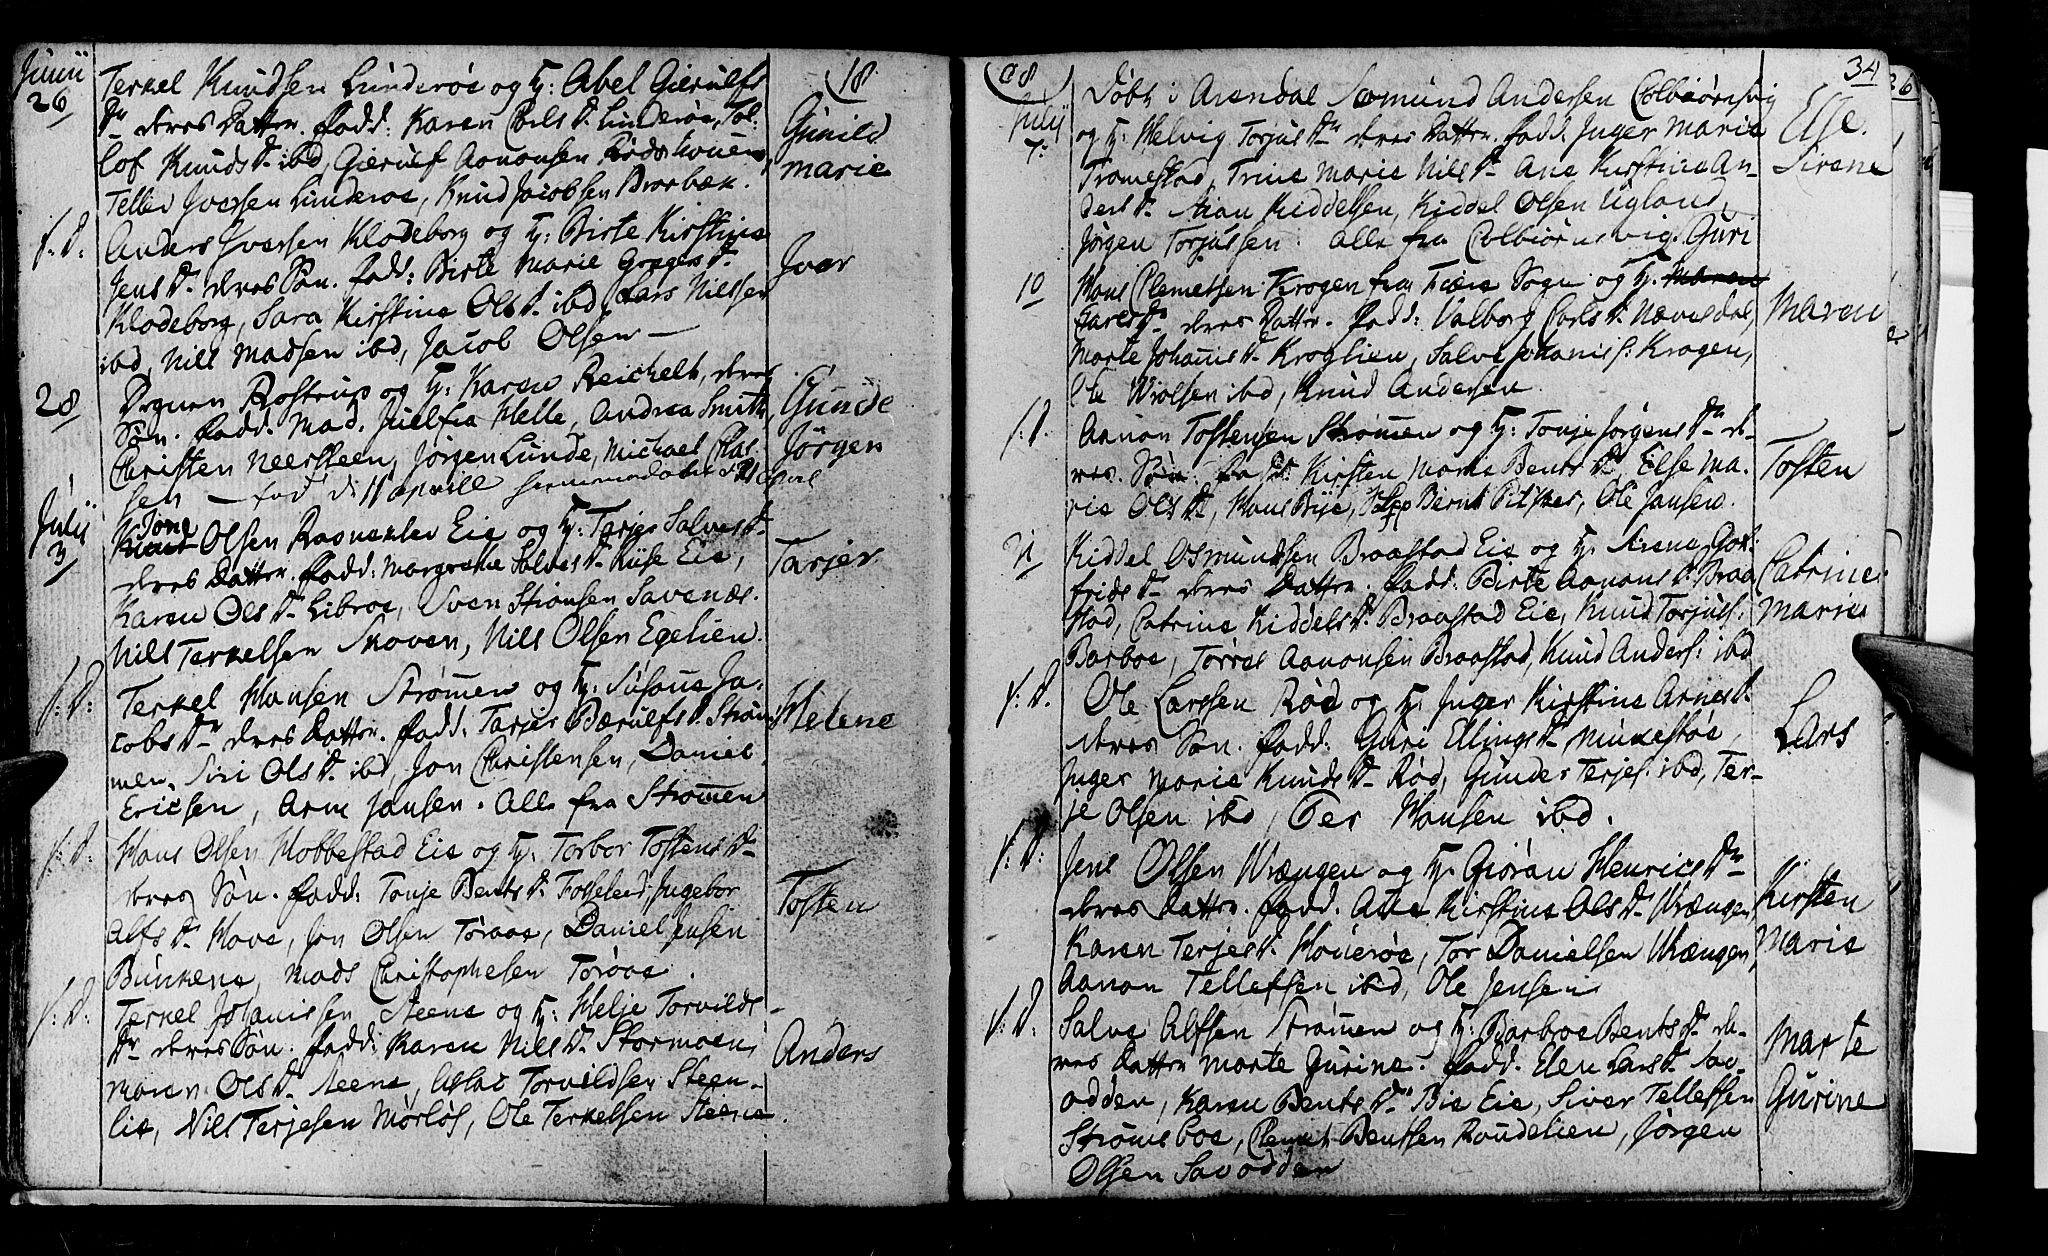 Junii
26
18
Terkel Knudsen Linderøe og H: Abel Gierulfs
Dr. deres Datter. fadd: Karen Carls D. Linderøe, Tol-
lof Knuds D. ibd, Gierulf Aanonsen Rødshouen,
Tellev Iversen Linderoe, Knud Jacobsen Brorbæk.
Gunild
marie
s: D:
Anders Iversen Klodeborg og H: Birte Kirstine
Jens D. deres Søn. fadd: Birte Marie Gregers D.
Klodeborg, Sara Kirstine Ols D. ibd, Lars Nilssen
ibd, Nils Madsen ibd, Jacob Olsen
Iver
28
Degnen Rostrup og H: Karen Reichelt, deres
Søn. fadd. Mad. Juel fra Helle, Andrea Smith
Christen Neersteen, Jørgen Lunde, Michael Clas
sen — fød d: 11 aprill hiemmedøbt d 21 April
Gunde
Jørgen
Julii
3
Jone
Olsen Ravnekler Eie og H: Tarjer Salves D.
deres Datter. fadd: Margrethe Salves D. Riise Eie,
Karen Ols D. Libroe, Sven Simonsen Savenæs.
Nils Terkelsen Skoven, Nils Olsen Egelien.
Tarjer
s: D:
Terkel Hansen Strømmen og H: Susanne Ja-
cobs D. deres Datter. fadd: Tarjer Bærulfs D. Strøm
men, Siri Ols D. ibd, Jon Christensen, Daniel
Ericsen, Arm Jansen. Alle fra Strømmen
Helene
s: D:
Hans Olsen Hobbestad Eie og H: Torbor Tostens D.
deres Søn. fadd: Tonje Bents D. Fosselied, Ingebor
Alfs D. Hove, Jon Olsen Toraae, Daniel Jensen
Bunkene, Mads Christophersen Toraae.
Tosten
s: D:
Terkel Johannissen Steene og H: Helje Torvilds
Dr. deres Søn. fadd: Karen Nils D. Stormoen,
maren Ols D. Steene, Aslac Torvildsen Steen-
lie, Nils Terjesen Mørløs, Ole Terkelsen Steene
Anders
08
34
Julii
7.
Døbt i Arendal Somund Andersen Colbiørnsvig
og H: Helvig Torjus D. deres Datter. fadd. Inger Marie
Tromestad, Trine Marie Nils D. Ane Kirstine An-
ders D. Kiddelsen, Kiddel Olsen Ugland,
Jørgen Torjussen. Alle fra Colbiørnsvig. Guri
Else
Sirene
10
Hans Clemetsen Krogen fra Fiære Sogn og H: Maren
Tares D. deres Datter. fadd: Valborg Carls D. Nævesdal,
Marte Johannis D. Kroglien, Salve Johannis s: Krogen,
Ole Wrolsen ibd, Knud Andersen.
Maren
s: D.
Aanon Tostensen Strømmen og H: Tonje Jørgens D. de-
res Søn. fadd: Kirsten Marie Bents D. Else Ma-
rie Ols D. Hans Brje, Bernt Pitsker, Ole Jansen.
Tosten
21
Kiddel Osmundsen Braastad Eie og H: Sirene Got-
frids D. deres Datter. fadd. Birte Aanons D. Braa
stad, Catrine Kiddels D. Braastad Eie, Knud Torjus s:
Barboe, Torres Aanonsen Braastad, Knud Anders s: ibd
Catrine
Marie
s: D.
Ole Larssen Røe og H: Inger Kirstine Arnes D.
deres Søn. fadd: Guri Ellings D. Minkestøe,
Inger Marie Knuds D. Rød, Gunder Terjes: ibd, Ter-
je Olsen ibd, Peer Hansen ibd.
Lars
s: D:
Jens Olsen Wrængen og H: Giøran Henrics D.
deres Datter. fadd. Ane Kirstine Ols D. Wrængen,
Karen Terjes D. Houerøe, Tor Danielsen Wrængen,
Aanon Tellefsen ibd, Ole Jensen
Kirsten
Marie
s: D.
Salve Alfsen Strømmen og H: Barboe Bents D. de-
res Datter Marte Gurine. fadd. Elen Lars D. Sav-
odden, Karen Bents D. Bie Eie, Siver Tellefsen
Strømsboe, Clemet Bentsen Rondelien, Jørgen
Olsen Savodden
Marte
Gurine